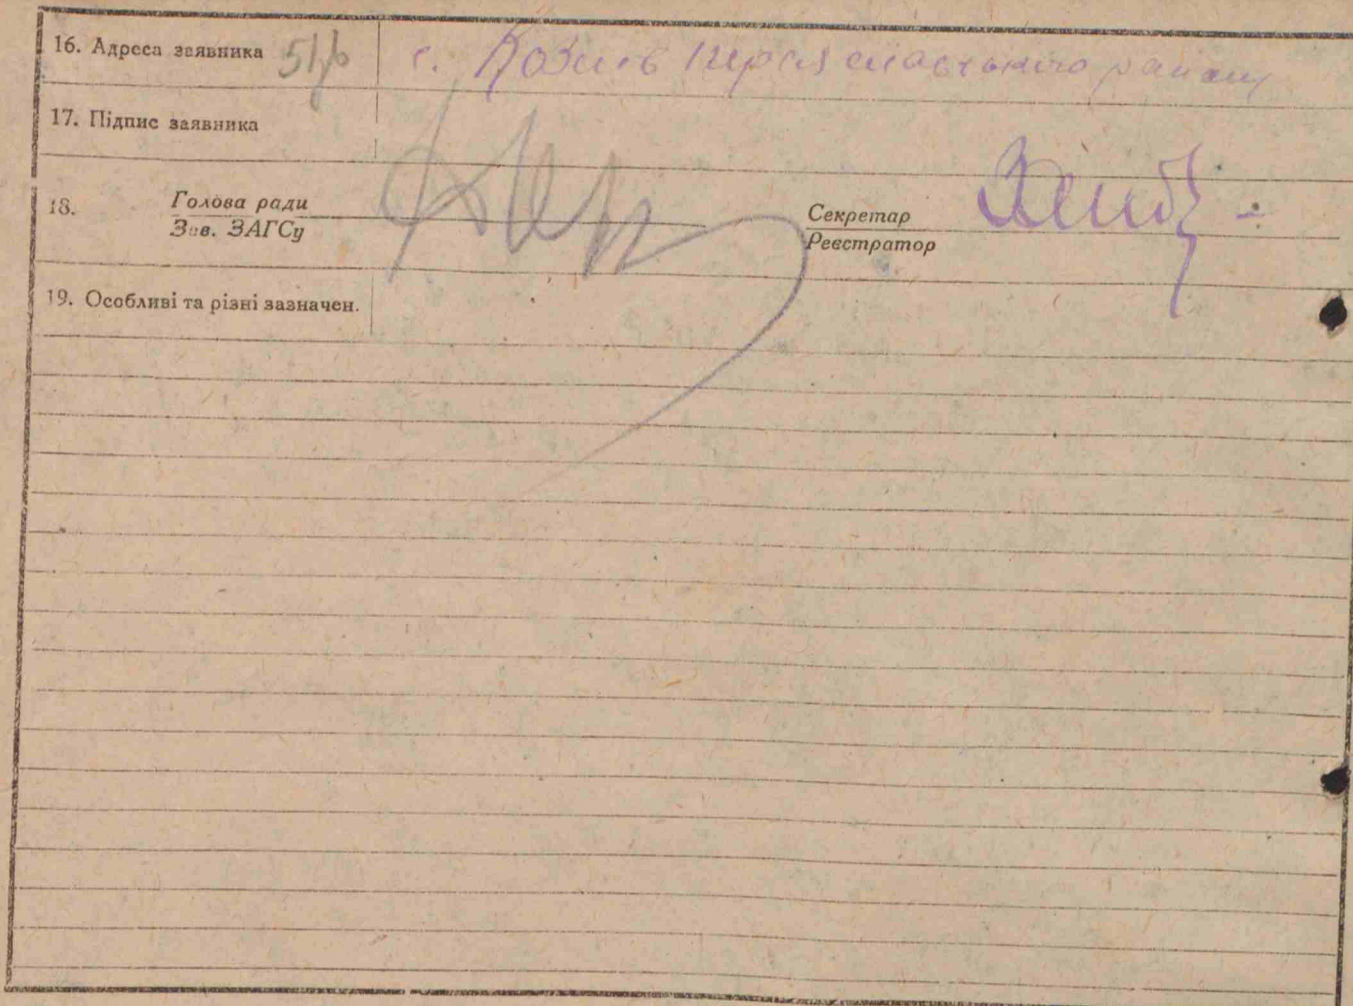 16. Адреса заявника с. Козинь Переяславського району
17. Підпис заявника
18. Голова ради Секретар
Зав. ЗАГСу Реєстратор
19. Особливі та різні зазначен.